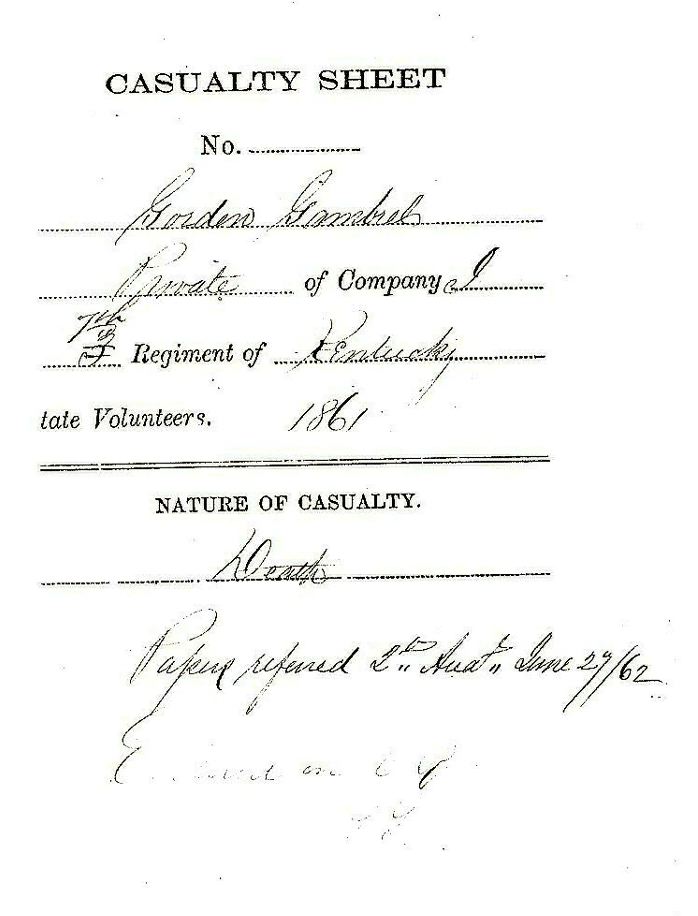 CASUALTY SHEET
No.
Gorden Gambrel
Private of Company I
7th
Regiment of Kentucky
tate Volunteers. 1861
NATURE OF CASUALTY.
Death
Papers referred 2nd Aud. June 27/62